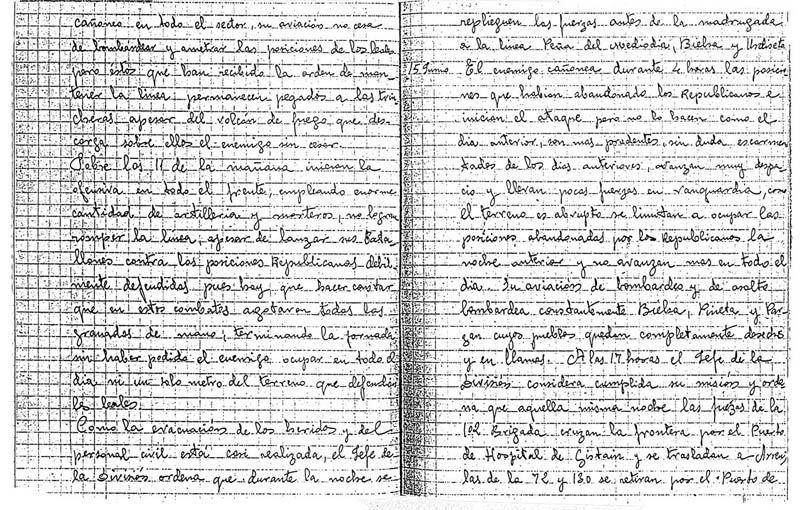 cañoneo en todo el sector, su aviación no cesa
de bombardear y ametrar las posiciones de los leales
pero estos que han recibido la orden de man-
tener la linea permanecen pegados a las trin
cheras apesar del volcán de fuego que des-
carga sobre ellos el enemigo sin cesar.
Sobre las 11 de la mañana inician la
ofensiva en todo el frente, empleando enorme
cantidad de artilleria y morteros, no logran
romper la linea, apesar de lanzar sus Bata-
llones contra las posiciones Republicanas debil-
mente defendidas pues hay que hacer constar
que en estos combates agotaron todas las
granadas de mano, terminando la jornada
sin haber podido el enemigo ocupar en todo el
dia ni un solo metro del terreno que defendian
los leales.
Como la evacuación de los heridos y del
personal civil está casi realizada, el Jefe de
la División ordena que durante la noche se
replieguen las fuerzas antes de la madrugada
a la linea Peña del Mediodia, Bielsa y
15 Junio El enemigo cañonea durante 4 horas las posicio
nes que habian abandonado los Republicanos e
inician el ataque pero no lo hacen como el
dia anterior, son mas prudentes, sin duda escarmen
tados de los dias anteriores, avanzan muy despa
cio y llevan pocas fuerzas en vanguardia, como
el terreno es abrupto se limitan a ocupar las
posiciones abandonadas por los Republicanos la
noche anterior y no avanzan mas en todo el
dia. Su aviación de bombardeo y de asalto
bombardea constantemente Bielsa, Pineta y Par-
zan cuyos pueblos quedan completamente deshechos
y en llamas. A las 17 horas el Jefe de la
División considera cumplida su misión y orde
na que aquella misma noche las fuerzas de la
102 Brigada cruzan la frontera por el Puerto
de Hospital de Gistain y se trasladan a Arreu
las de la 72 y 130 se retiran por el Puerto de